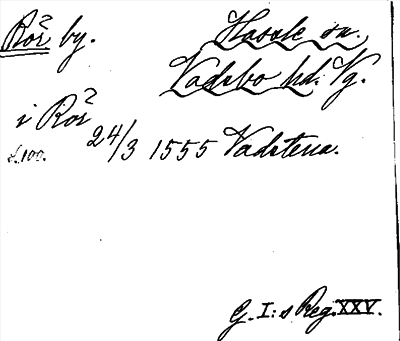 Roz by. Hassle sn.
Vadsbo hd. Vg.
i Roz
s. 100. 24/3 1555 Vadstena.
G. I:s Reg. XXV.